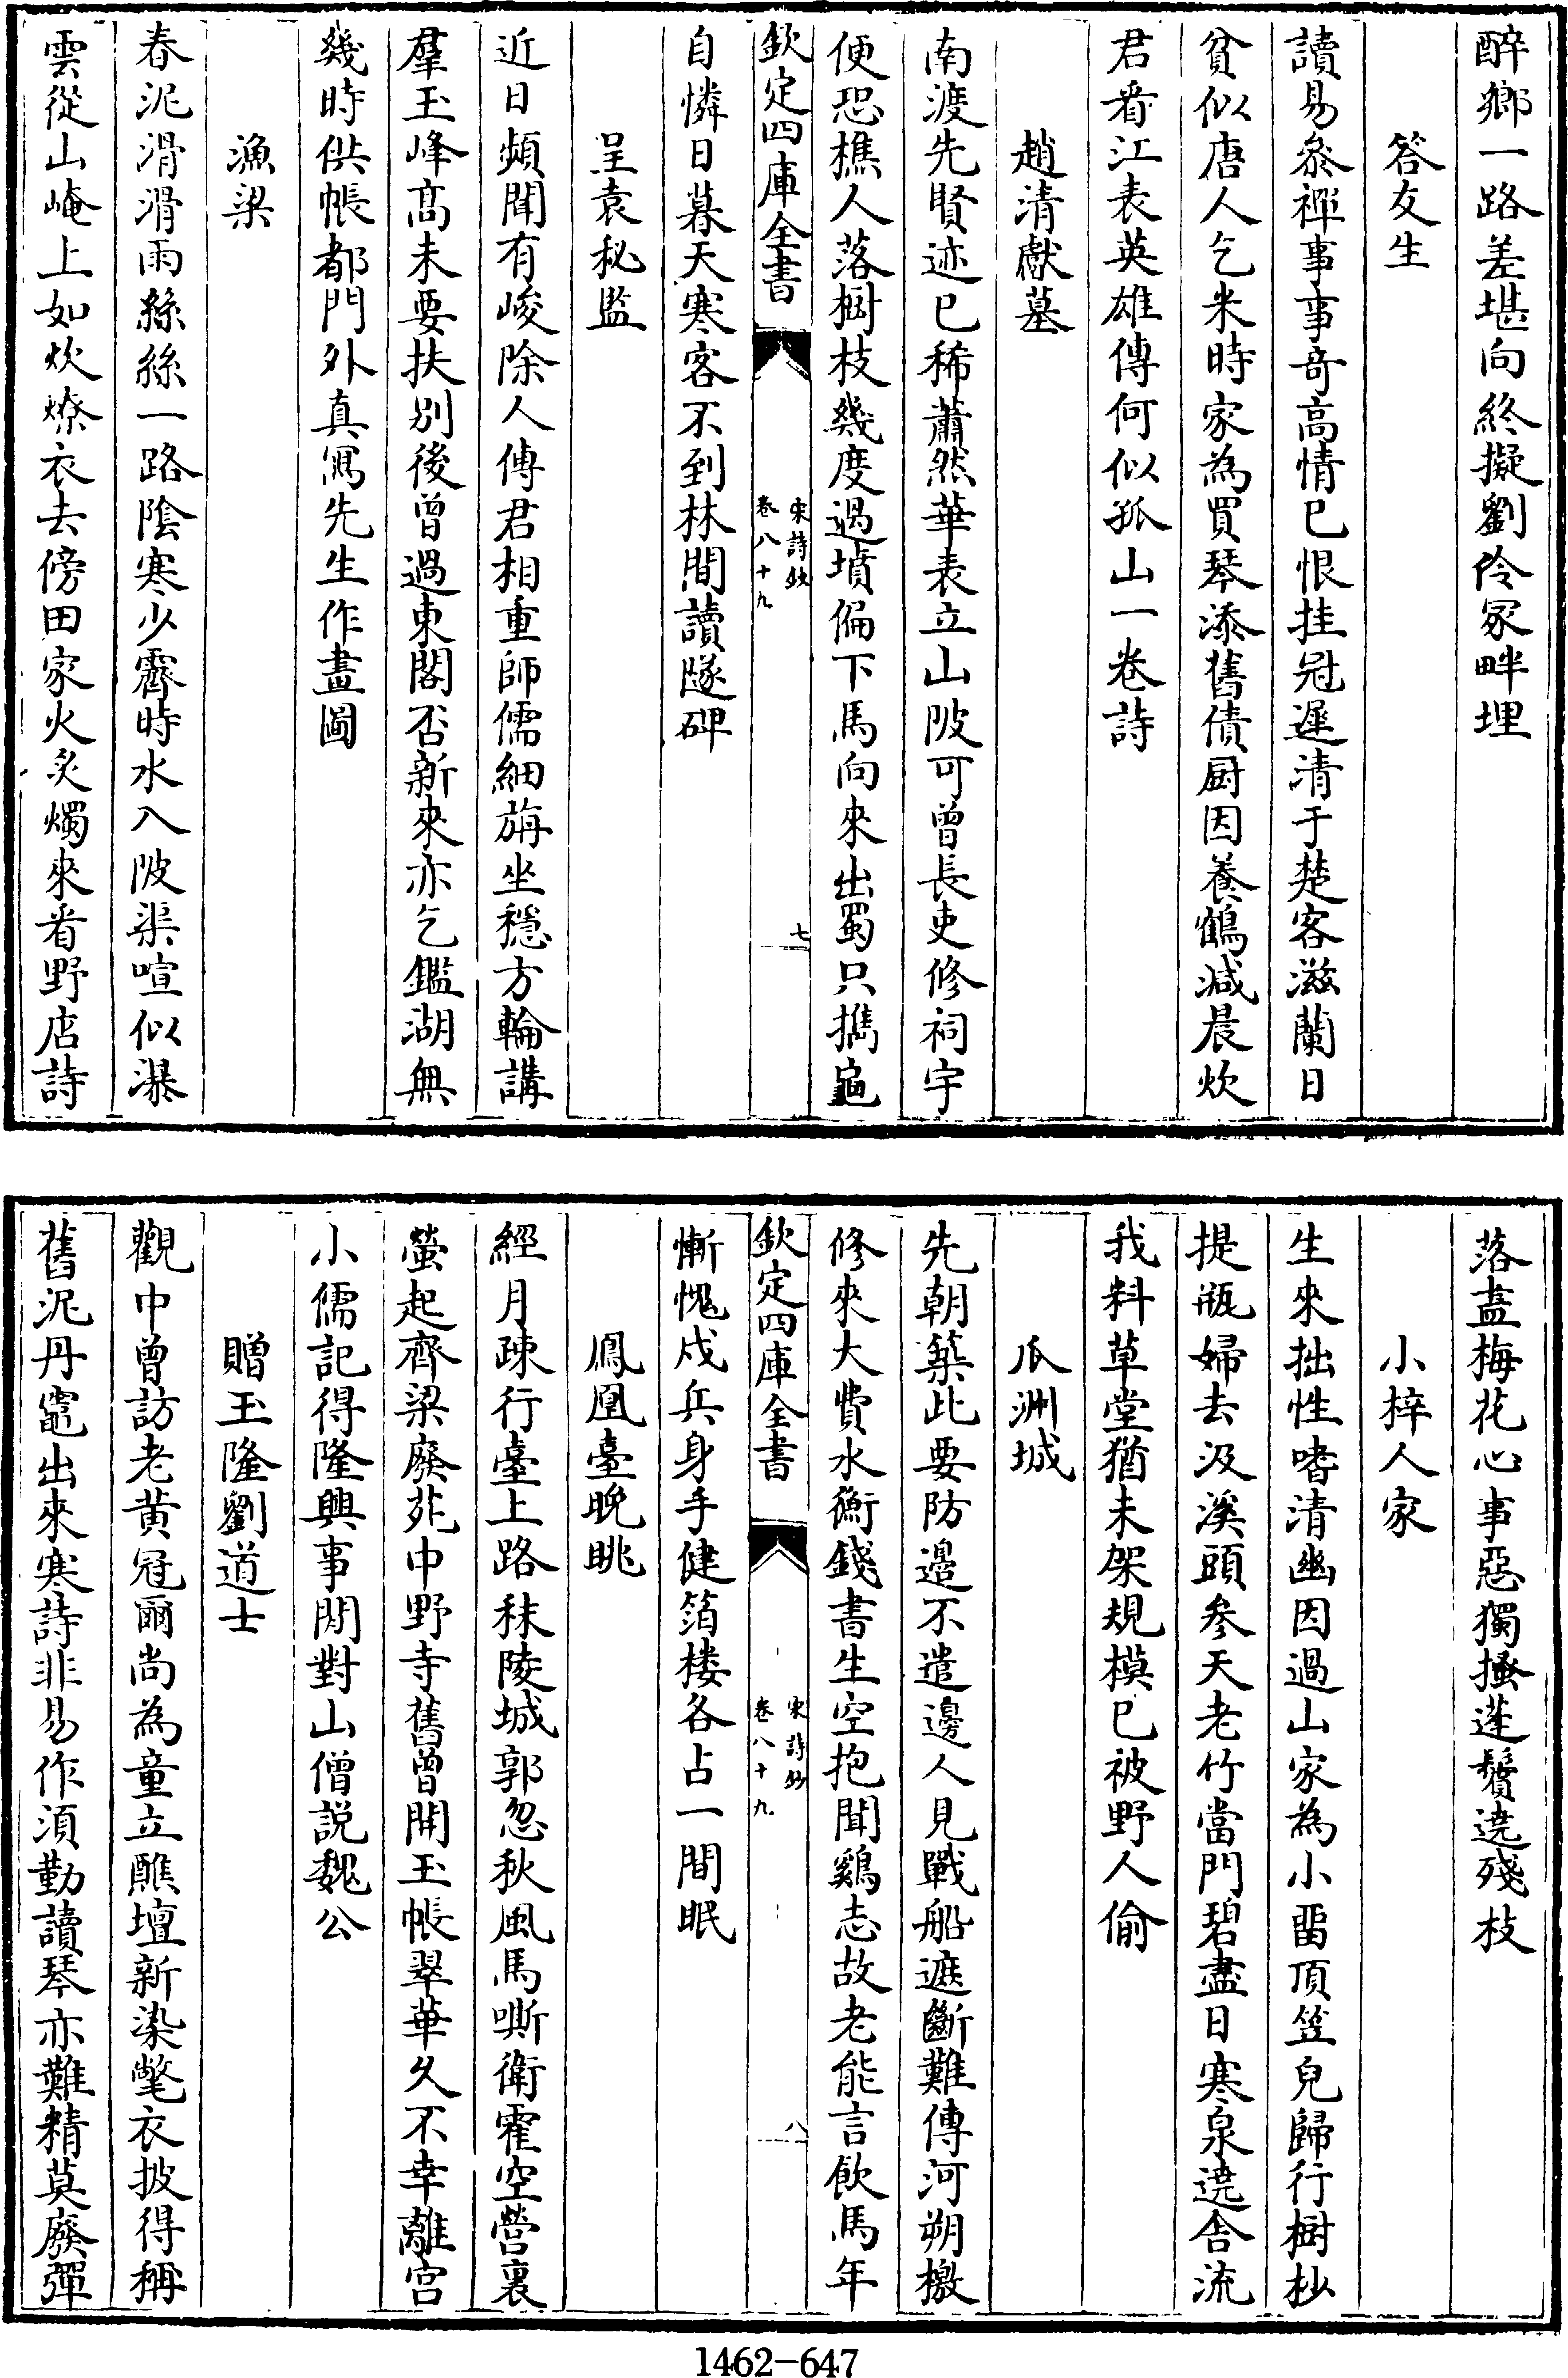 醉鄉一路差堪向終擬劉伶冢畔埋
答友生
讀易叅禪事事奇高情已恨挂冠遲清于楚客滋蘭日
貧似唐人乞米時家為買琴添舊債厨因養鶴減晨炊
君看江表英雄傳何似孤山一卷詩
趙清獻墓
南渡先賢迹已稀蕭然華表立山陂可曾長吏修祠宇
便恐樵人落樹枝幾度過墳偏下馬向來出蜀只擕龜
欽定四庫全書
宋詩鈔
卷八十九
七
自憐日暮天寒客不到林間讀隧碑
呈袁秘監
近日頻聞有峻除人傳君相重師儒細旃坐穩方輪講
羣玉峰高未要扶别後曾過東閣否新來亦乞鑑湖無
幾時供帳都門外真寫先生作畫圖
漁梁
春泥滑滑雨絲絲一路陰寒少霽時水入陂渠喧似瀑
雲從山崦上如炊燎衣去傍田家火炙燭來看野店詩
落盡梅花心事惡獨搔蓬鬢遶殘枝
小梓人家
生來拙性嗜清幽因過山家為小畱頂笠兒歸行樹杪
提瓶婦去汲溪頭參天老竹當門碧盡日寒泉遶舍流
我料草堂猶未架規模已被野人偷
瓜洲城
先朝築此要防邊不遣邊人見戰船遮斷難傳河朔檄
修來大費水衡錢書生空抱聞鷄志故老能言飲馬年
欽定四庫全書
宋詩鈔
卷八十九
八
慚愧戍兵身手健箔樓各占一間眠
鳳凰臺晚眺
經月疎行臺上路秣陵城郭忽秋風馬嘶衛霍空營裏
螢起齊梁廢苑中野寺舊曾開玉帳翠華久不幸離宮
小儒記得隆興事閒對山僧説魏公
贈玉隆劉道士
觀中曾訪老黄冠爾尚為童立醮壇新染氅衣披得稱
舊泥丹竈出來寒詩非易作須勤讀琴亦難精莫廢彈
1462-647